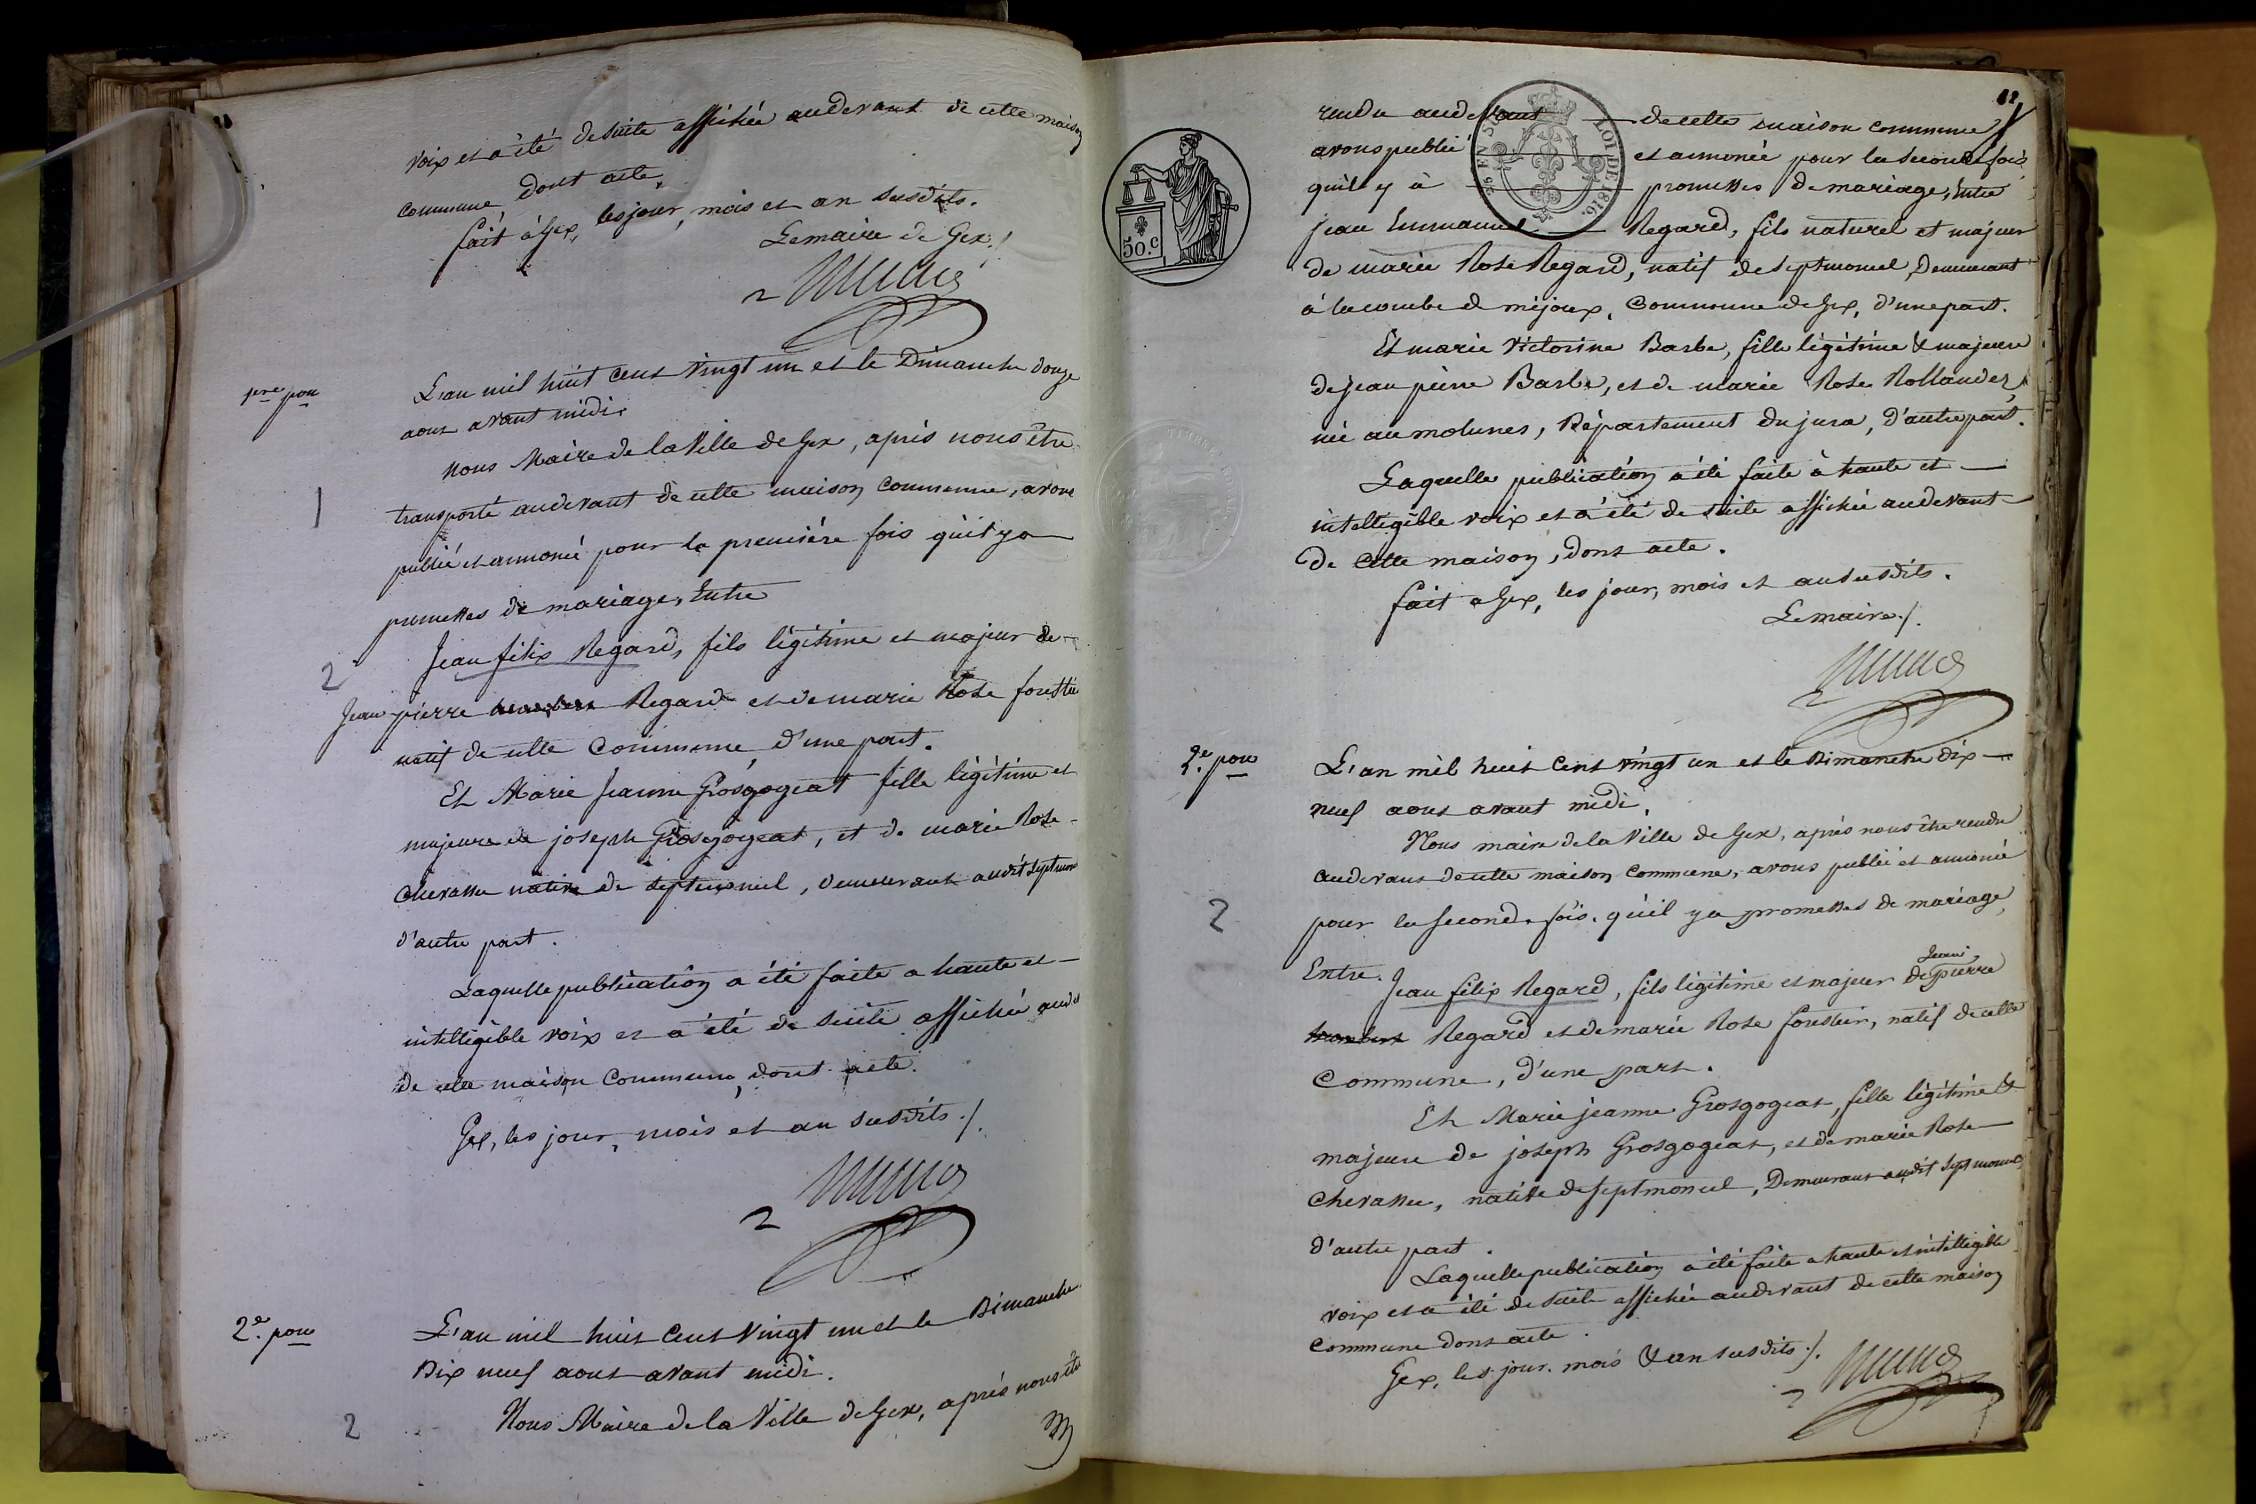 voix et a été desuite affichée audevant de cette maison
commune dont acte,
fait à Gex, les jour, mois et an susdits.
Lemaire de Gex ./.
1re pon
L'an mil huit cent vingt un et le Dimanche douze
aout avant midi.
Nous Maire de la Ville de Gex, après nous être
transporté audevant de cette maison commune, avons
1
publié et annoncé pour la première fois qu'il y a
promesses de mariage, Entre
Jean félix Regard, fils légitime et majeur de
2
Jean pierre Regard et de marie Rose forestier
natif de cette Commune, d'une part.
Et Marie Jeanne Grosgogeat fille légitime et
majeure de joseph Grosgogeat, et de marie Rose
Chevassu native de septmoncel, demeurant audit septmoncel
d'autre part.
Laquelle publication a été faite a haute et
intelligible voix et a été de suite affichée audevt
de cette maison Commune, dont acte.
Gex, les jour, mois et an susdits ./.
2e. pon
L'an mil huit cent vingt un et le Dimanche
Dix neuf aout avant midi.
Nous Maire de la Ville de Gex, après nous être
2
12
rendu audevant de cette maison commune
avons publié et annoncé pour la seconde fois
qu'il y à promesses de mariage, Entre
Jean Emmanuel Regard, fils naturel et majeur
de marie Rose Regard, natif de septmoncel, Demeurant
à la combe de mijoux, Commune de Gex, d'une part.
Et marie Victorine Barbe, fille légitime & majeure
de Jean pierre Barbe, et de marie Rose Rollandez
née au molunes, Département du jura, d'autre part.
Laquelle publication a été faite à haute et
intelligible voix et a été de suite affichée audevant
de cette maison, dont acte.
fait a Gex, les jour, mois et an susdits.
Lemaire ./.
50.c
LOI DE 1816.
2e. pon
L'an mil huit cent vingt un et le Dimanche dix
neuf aout avant midi.
Nous maire de la Ville de Gex, après nous être rendu
audevant de cette maison Commune, avons publié et annoncé
2
pour la seconde fois, qu'il y a promesses de mariage,
Entre. Jean félix Regard, fils légitime et majeur de Jean pierre
Regard et de marie Rose forestier, natif de cette
Commune, d'une part.
Et Marie jeanne Grosgogeat, fille légitime &
majeure de joseph Grosgogeat, et de marie Rose
Chevassu, native de septmoncel, Demeurant audit septmoncel
d'autre part.
Laquelle publication a été faite a haute et intelligible
voix et a été de suite affichée audevant de cette maison
Commune dont acte.
Gex, les jour, mois & an susdits ./.